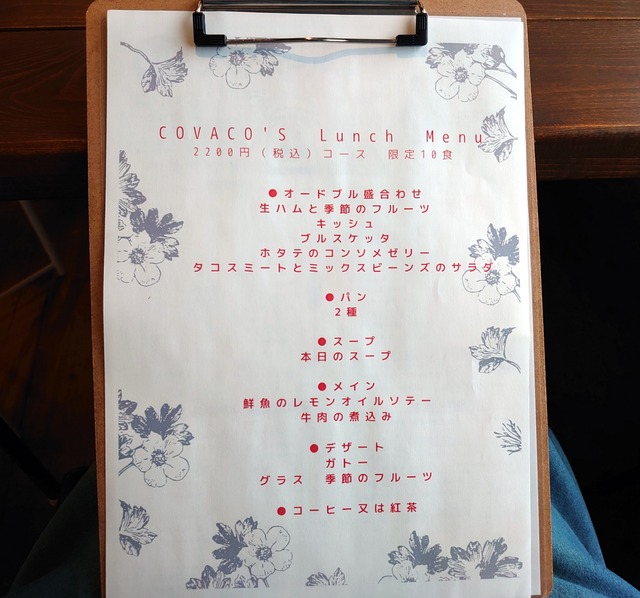 COVACO'S Lunch Menu
2200円(税込)コース 限定10食
●オードブル盛合わせ
生ハムと季節のフルーツ
キッシュ
ブルスケッタ
ホタテのコンソメゼリー
タコスミートとミックスビーンズのサラダ
●パン
2種
●スープ
本日のスープ
●メイン
鮮魚のレモンオイルソテー
牛肉の煮込み
●デザート
ガトー
グラス 季節のフルーツ
●コーヒー又は紅茶